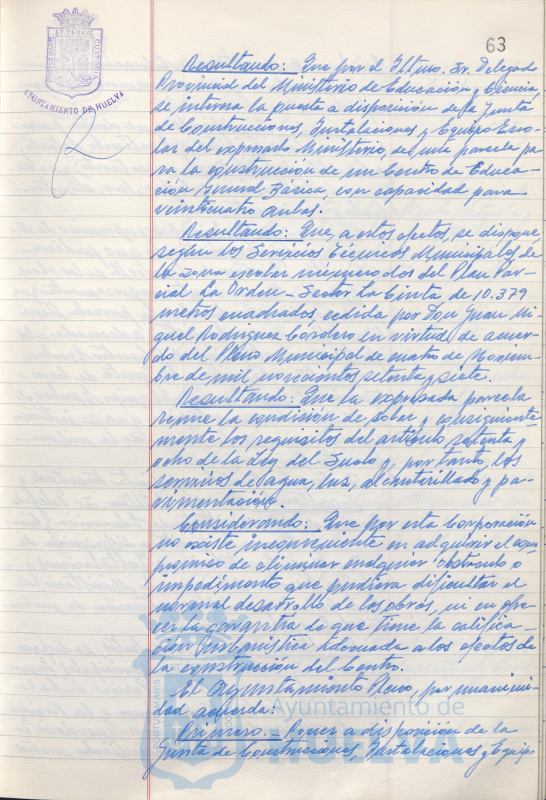 63
AYUNTAMIENTO DE HUELVA
Resultando: Que por el Iltmo. Sr. Delegado
Provincial del Ministerio de Educación y Ciencia,
se interesa la puesta a disposición de la Junta
de Construcciones, Instalaciones y Equipo Esco-
lar del expresado Ministerio, de una parcela pa-
ra la construcción de un Centro de Educa-
ción General Básica, con capacidad para
veinticuatro aulas.
Resultando: Que, a estos efectos, se dispone,
según los Servicios Técnicos Municipales de
la zona escolar número dos del Plan Par-
cial La Orden - Sector La Cinta de 10.379
metros cuadrados cedida por Don Juan Mi-
guel Rodríguez Cordero en virtud de acuer-
do del Pleno Municipal de cuatro de Noviem-
bre de mil novecientos setenta y siete.
Resultando: Que la expresada parcela
reune la condición de solar y consiguiente-
mente los requisitos del artículo setenta y
ocho de la Ley del Suelo y, por tanto, los
servicios de agua, luz, alcantarillado y pa-
vimentación.
Considerando: Que por esta Corporación
no existe inconveniente en adquirir el com-
promiso de eliminar cualquier obstáculo o
impedimento que pudiera dificultar el
normal desarrollo de las obras, ni en ofre-
cer la garantía de que tiene la califica-
ción urbanística adecuada a los efectos de
la construcción del Centro.
El Ayuntamiento Pleno, por unanimi-
dad acuerda:
Primero. - Poner a disposición de la
Junta de Construcciones, Instalaciones y Equipo
Ayuntamiento de
HUELVA